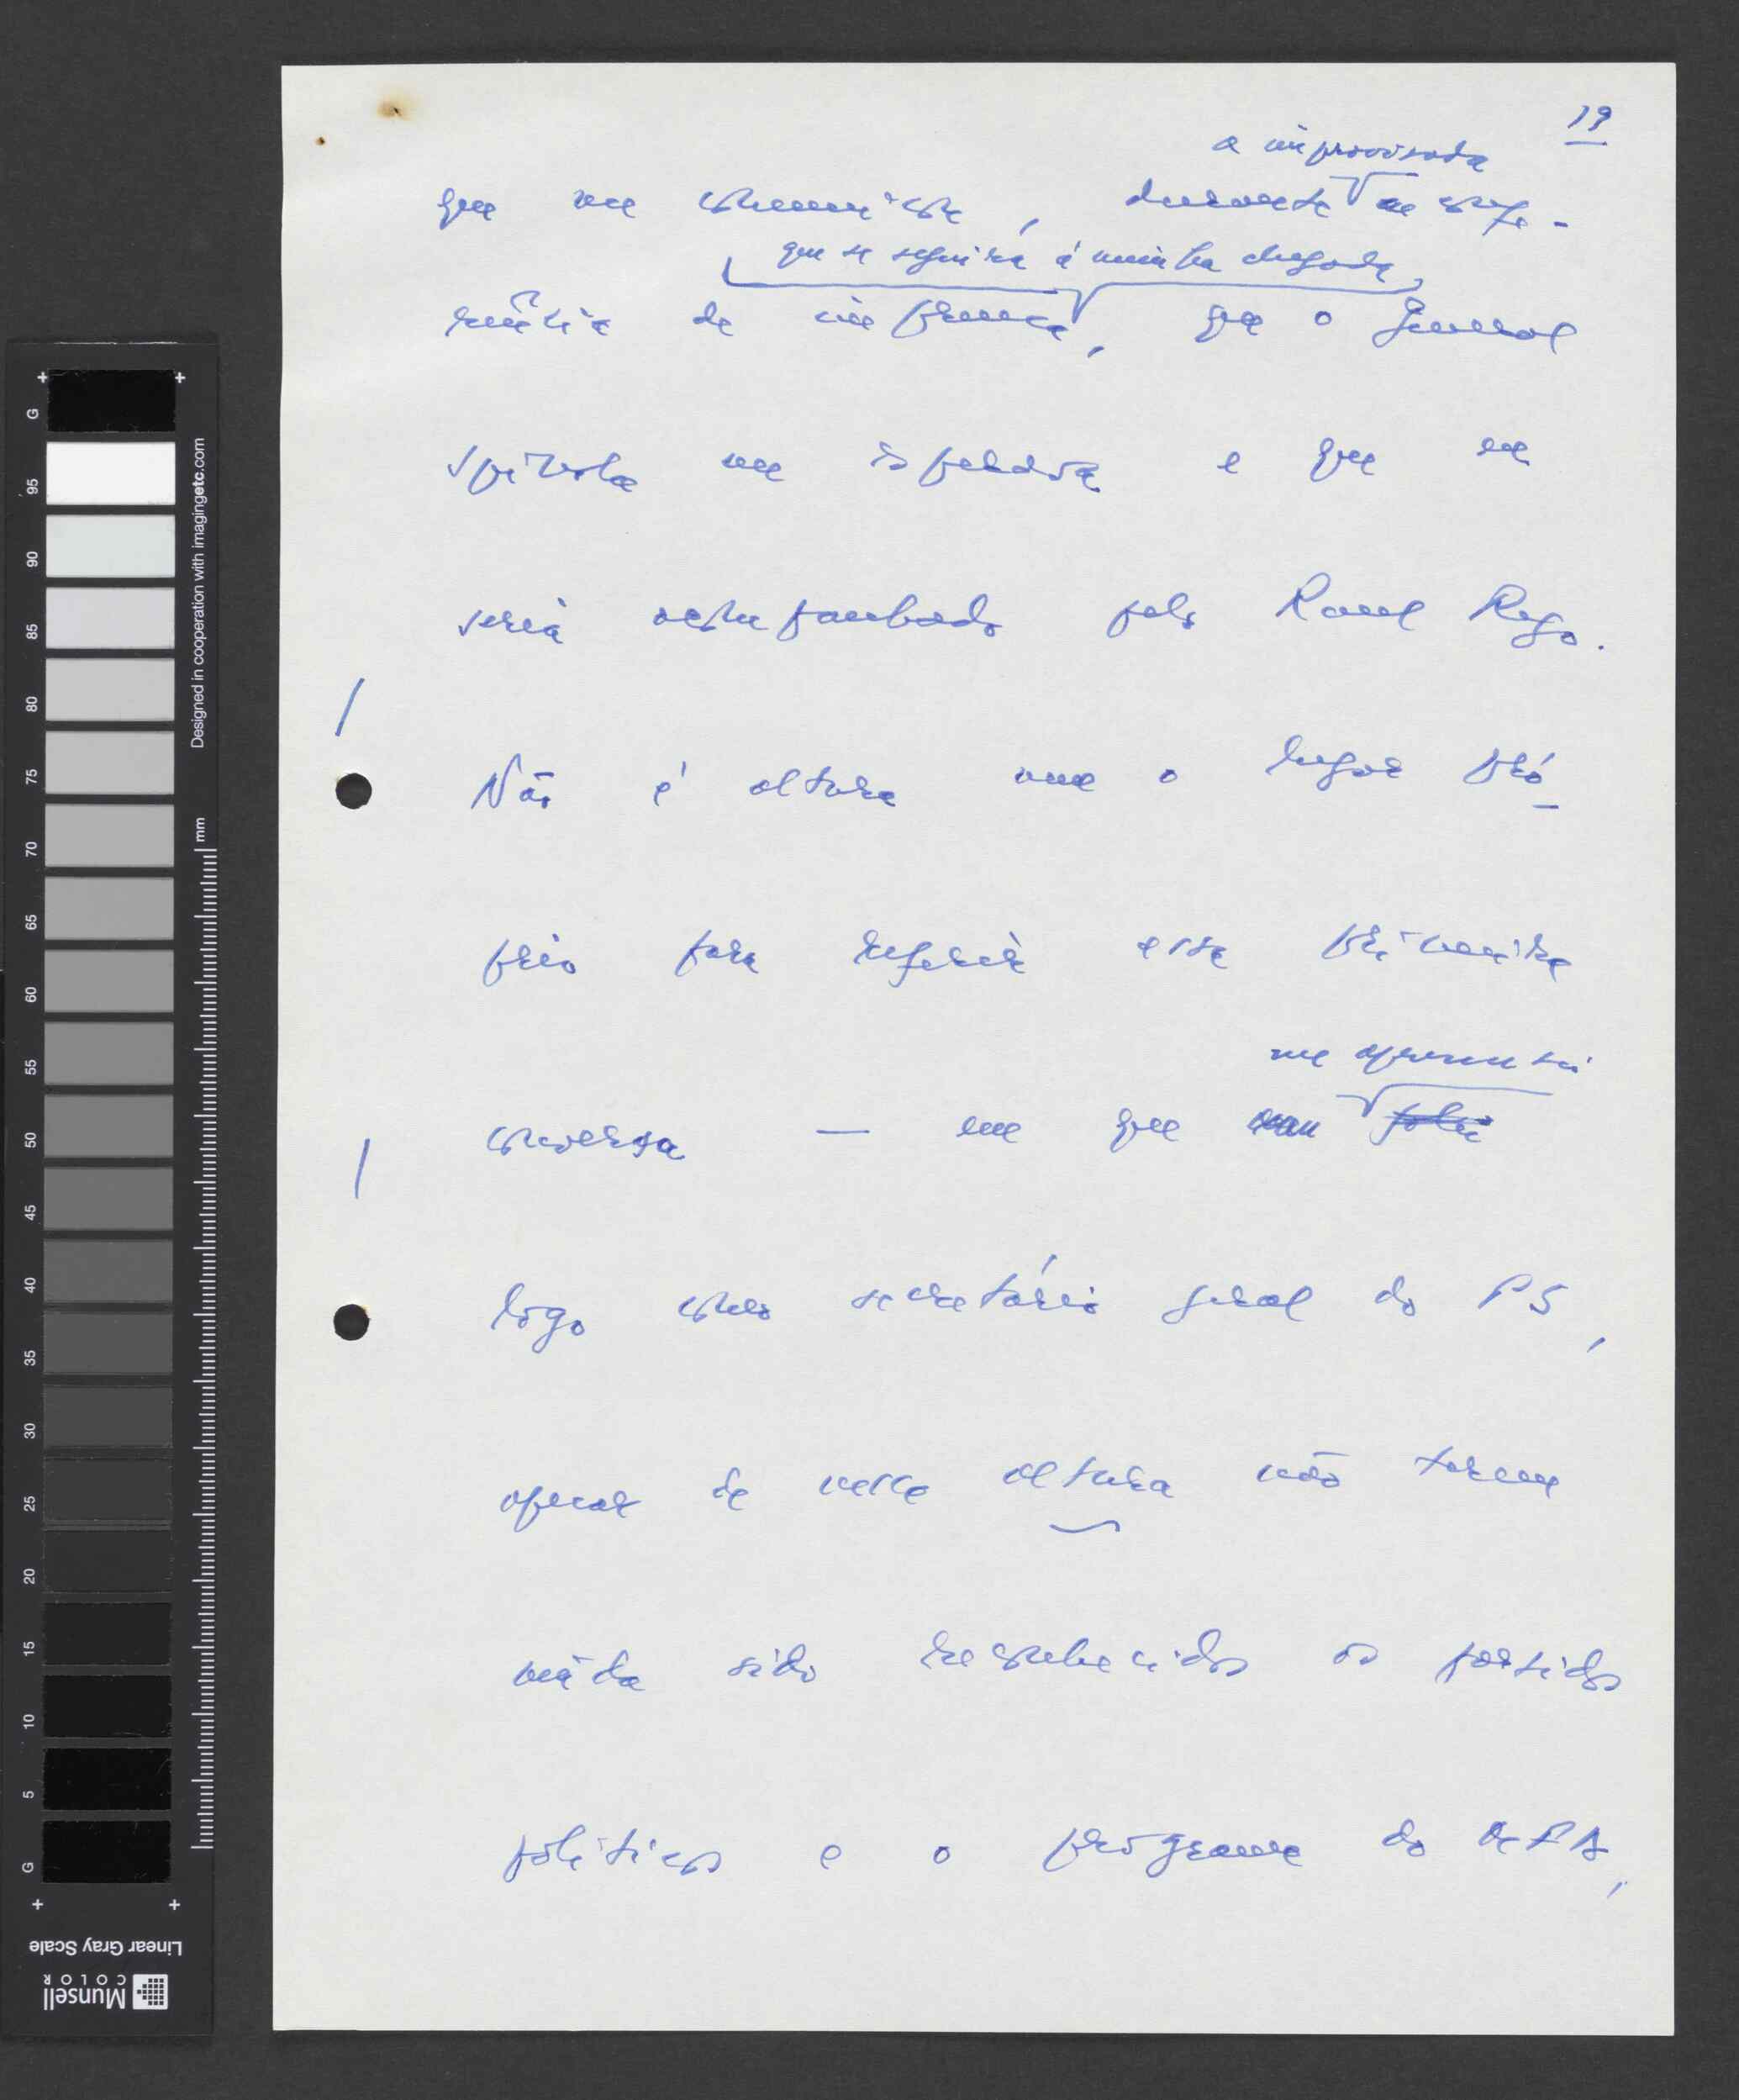 19
a improvisada
que me comunica, durante a confe-
que se seguira à minha chegada,
rência de imprensa, que o General
Spínola me esperava e que eu
seria acompanhado pelo Raul Rego.
Não é altura nem o lugar pró-
prio para referir essa primeira
me apresentei
conversa — em que
logo como secretário geral do PS,
apesar de nessa altura não terem
ainda sido reconhecidos os partidos
políticos e o programa do MFA,
G
95
90
85
80
75
70
65
60
55
50
45
40
35
30
25
20
15
10
5
G
Designed in cooperation with imagingetc.com
mm
Linear Gray Scale
Munsell
COLOR